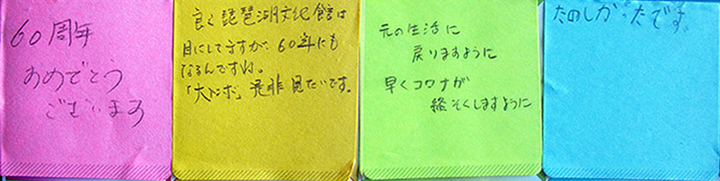 60周年
おめでとう
ございます
良く琵琶湖文化館は
目にしてますが、60年にも
なるんですね。
是非見たいです。
元の生活に
戻りますように
早くコロナが
終そくしますように
たのしかったです。